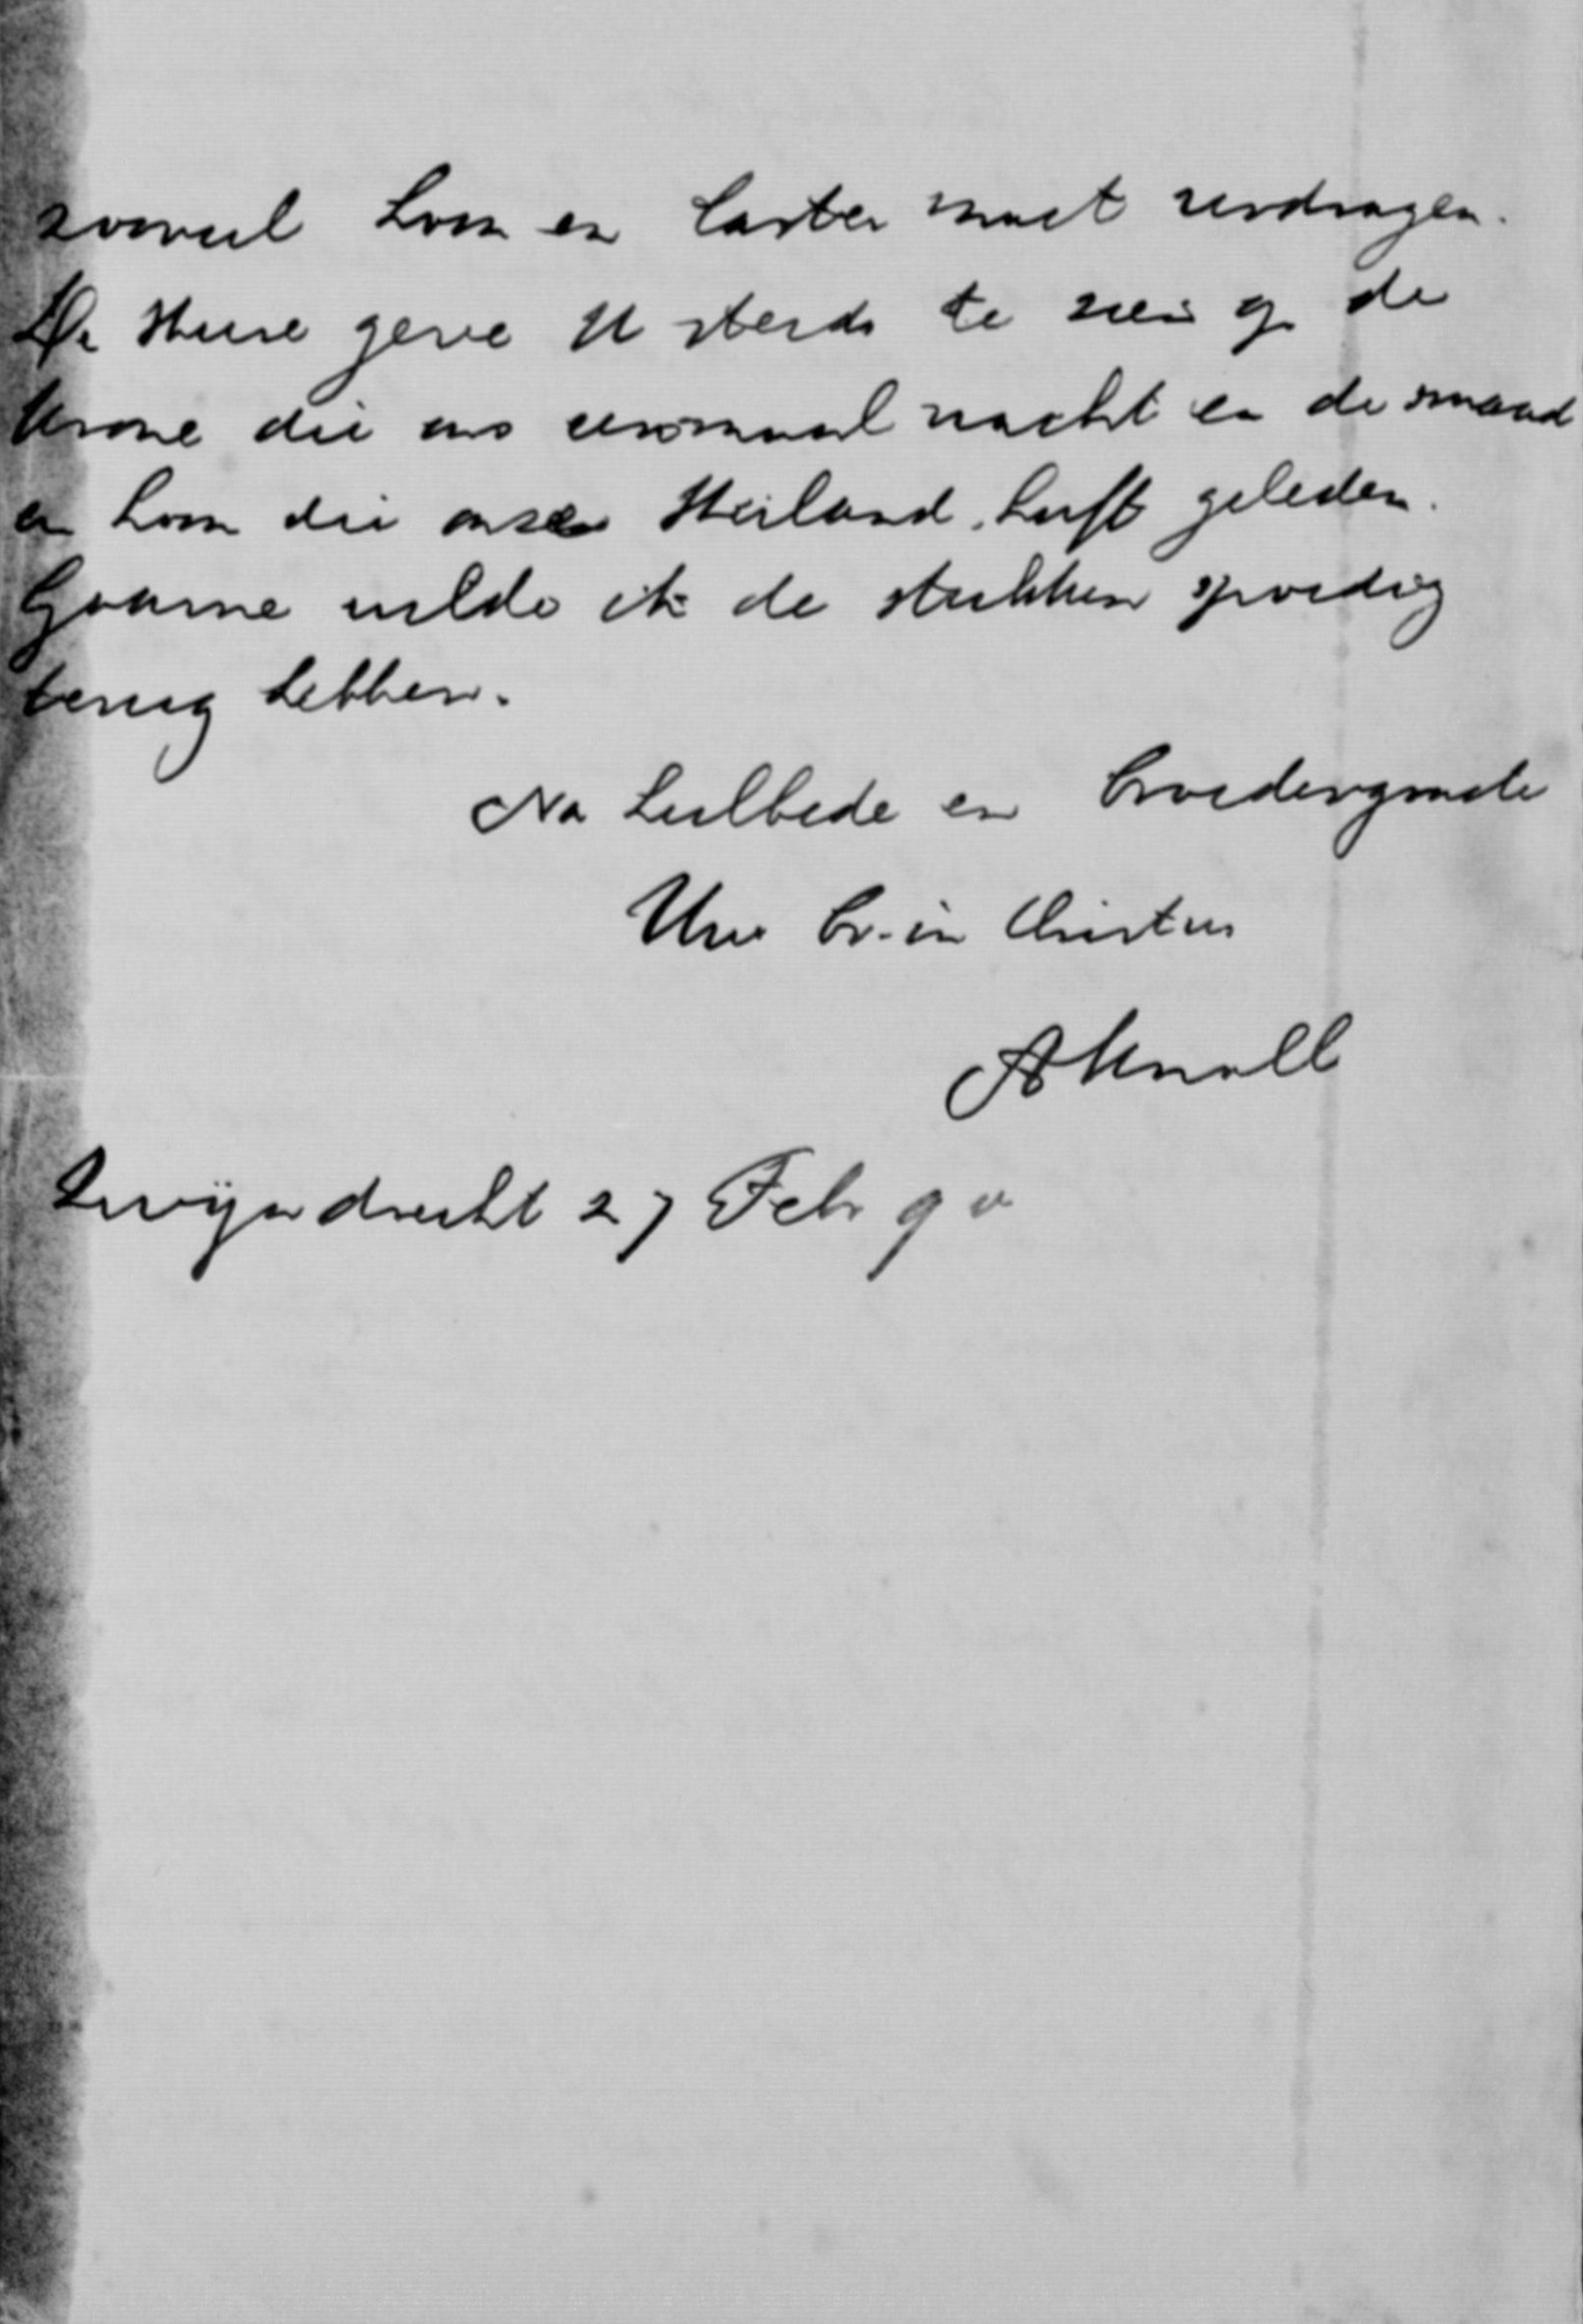 zooveel hoon en laster moet verdragen.
De Heere geve U steeds te zien op de
krone die ons eenmaal wacht en de smaad
en hoon die onze Heiland heeft geleden.
Gaarne wilde ik de stukken spoedig
terug hebben.
Na heilbede en broedergroete
Uw br. in Christus
A Knoll
Zwijndrecht 27 Febr 90